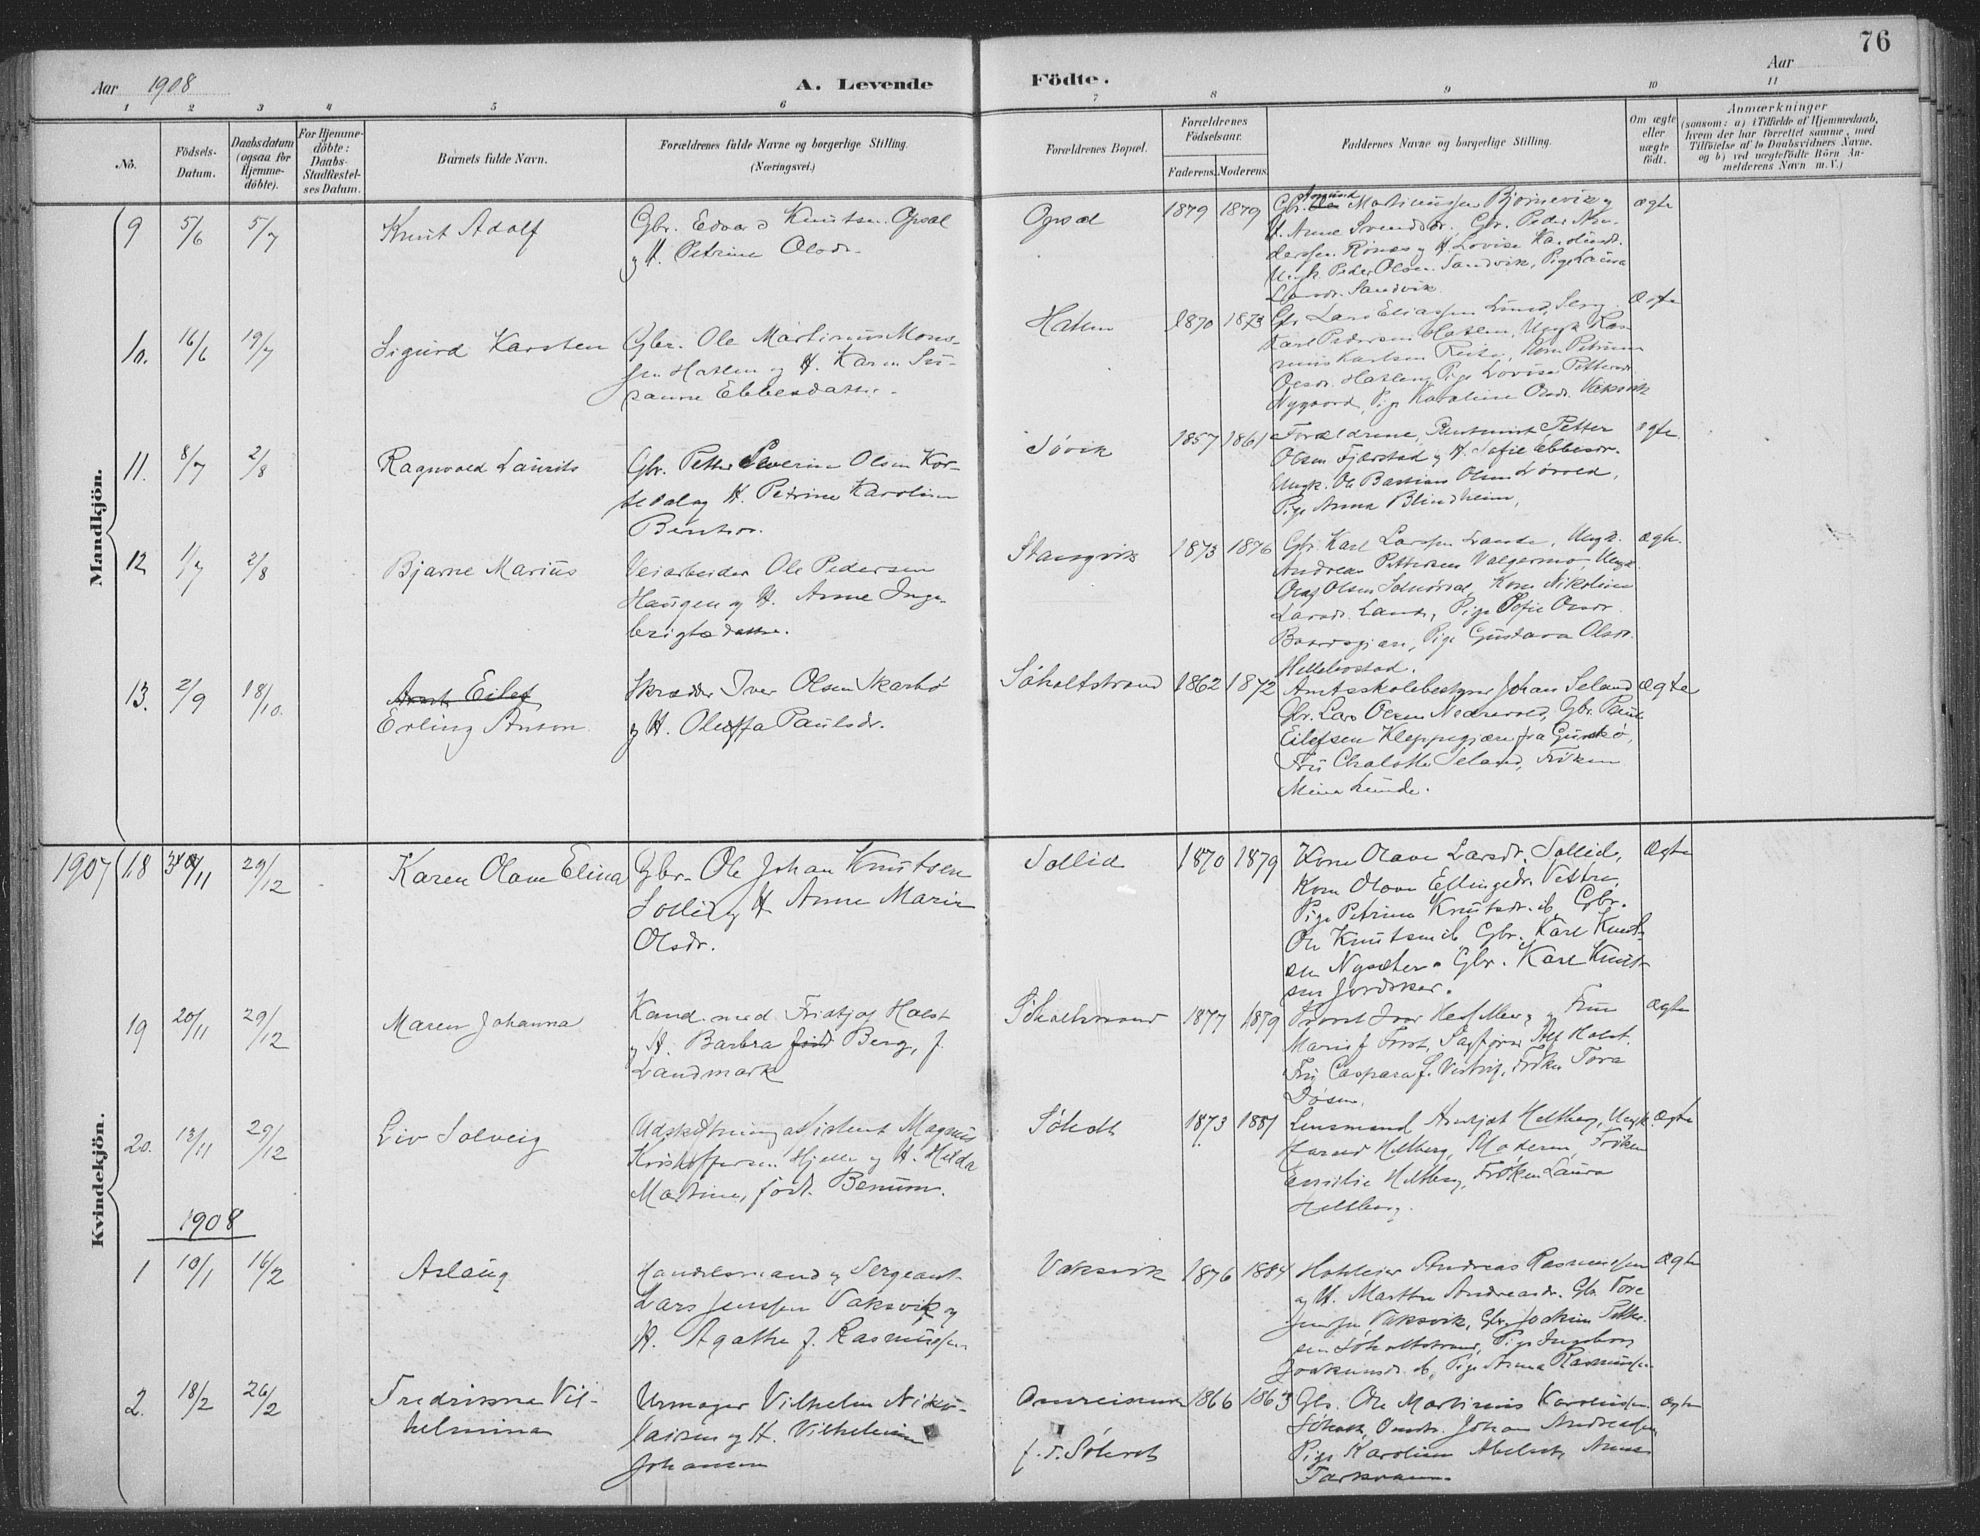 76
Aar 1908
A. Levende
Födte.
Aar
1 2 3 4 5 6 7 8 9 10 11
No.
Födsels-
Datum.
Daabsdatum
(ogsaa for
Hjemme-
döbte).
For Hjemme-
döbte:
Daabs-
Stadfæstel-
ses Datum.
Barnets fulde Navn.
Forældrenes fulde Navne og borgerlige Stilling.
(Næringsvei.)
Forældrenes Bopæl.
Forældrenes
Födselsaar.
Faderens. Moderens.
Faddernes Navne og borgerlige Stilling.
Om ægte
eller
uægte
født.
Anmærkninger
(saasom: a) i Tilfælde af Hjemmedaab,
hvem der har forrettet samme, med
Tilföielse af to Daabsvidners Navne.
og b) ved uægtefödte Börn An-
melderens Navn m. V.)
Mandkjön.
9 5/6 5/7 Knut Adolf
Gbr. Edvard Knutsen Opsal
og H. Petrine Olsdr.
Opsal 1879 1879
Gbr. Martinussen Bjørnevik og
H. Anne Svendsdr., Gbr. Peder An-
derssen Rønes og H. Lovise Karolinedr.
Ungk. Peder Olsen Sandvik, Pige Laura
Larsdr. Sandvik
ægte
10. 16/6 19/7 Sigurd Karsten
Gbr. Ole Martinus Mons-
sen Hatlen og H. Karen Su-
sanne Ebbesdatter.
Hatlen 1870 1873
Gbr. Lars Eliassen Lund, Serg.
Karl Pedersen Hatlen, Ungk. Ras-
mus Karlsen Reiten, Kone Petrine
Olsdr. Hatlen, Pige Lovise Pettersdr.
Nygaard, Pige Karoline Olsdr. Vaksvik
ægte
11. 8/7 2/8 Ragnvald Laurits
Gbr. Petter Severin Olsen Kor-
sedal og H. Petrine Karoline
Berntsdr.
Søvik 1857 1861
Forældrene, Petter
Olsen Fjørstad og H. Sofie Ebbesdr.
Ungk. Ole Bastian Olsen
Pige Anna Blindheim,
ægte
12 1/7 2/8 Bjarne Marius
Veiarbeider Ole Pedersen
Haugen og H. Anne Inge-
brigtsdatter.
Stangvik 1873 1876
Gbr. Karl Larssen Lande, Ungk.
Andreas Pettersen Valgermo, Ungk.
Olaf Olsen Solnørdal, Kone Nikoline
Larsdr. Lande, Pige Sofie Olsdr.
Baardsgjær, Pige Gustava Olsdr.
Hellebostad.
ægte
13. 2/9 18/10. Eilef
Erling Anton
Skrædder Iver Olsen Skarbø
og H. Oleffa Paulsdr.
Søholtstrand 1862 1872
Amtsskolebestyrer Johan Seland
Gbr. Lars Olsen Nedrevold, Gbr. Paul
Eilefsen Kleppegjære fra Gurskø,
Fru Chalotte Seland, Frøken
Mina Lunde.
ægte
Kvindekjön.
1907 18 /11 29/12 Karen Olave Elina
Gbr. Ole Johan Knutsen
Sollid og H. Anne Marie
Olsdr.
Sollid 1870 1879
Kone Olave Larsdr. Sollid,
Kone Olave Ellingsdr. Vestre,
Pige Petrine Knutsdr. ib. Gbr.
Ole Knutsen ib. Gbr. Karl Knut-
sen Nysæter. Gbr. Karl Knut-
sen
ægte
19 20/11 29/12 Maren Johanna
Kand. med. Fridtjof Holst
og H. Barbra Berg, f.
Landmark
Søholtstrand 1877 1879
Provst Iver Hesselberg og Frue
Marie f. Frost, Sagfører Alf Holst.
Fru Caspara f. Frøken Tora
Døsen.
ægte
20. 13/11 29/12 Liv Solveig
Udskiftningassistent Magnus
Kristoffersen Hjelle og H. Hilda
Martine, født Benum.
Søholt 1873 1881
Lensmand Heltberg, Ungk.
Harald Heltberg, Moderen, Frøken
Emilie Heltberg, Frøken Laura
Heltberg.
ægte
1908
1 10/1 16/2 Aslaug
Handelsmand og Sergeant
Lars Jenssen Vaksvik og
H. Agathe f. Rasmussen
Vaksvik 1876 1884
Hotleier Andreas Rasmussen
og H. Marthe Andreasdr. Gbr. Tore
Jenssen Vaksvik, Gbr. Joakim Pette-
sen Søholtstrand, Pige Ingeborg
Joakimsdr. ib, Pige Anna Rasmussen
ægte
2. 18/2 26/2 Fredrikka Vil-
helmina
Urmager Vilhelm Niko-
laisen og H. Vilhelmine
Johansen
Omreisende
f. T. Søholt
1866 1863
Gbr. Ole Martinus Karolussen
Søholt, Johan Andreassen
Pige Karoline Anna
ægte